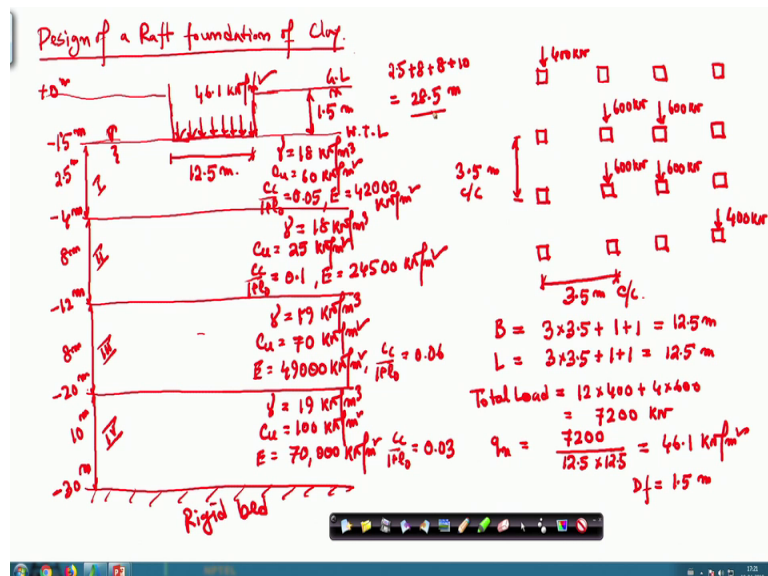 Design of a Raft foundation of Clay.
±0m
46.1 kN/m²
G.L
1.5 m
2.5+8+8+10
= 28.5 m
-1.5m
W.T.L
12.5 m.
2.5m
I
γ = 18 kN/m³
Cu = 60 kN/m²
Cc/1+e0 = 0.05, E = 42000 kN/m²
-4m
8m
II
γ = 18 kN/m³
Cu = 25 kN/m²
Cc/1+e0 = 0.1, E = 24500 kN/m²
-12m
8m
III
γ = 19 kN/m³
Cu = 70 kN/m²
E = 49000 kN/m², Cc/1+e0 = 0.06
-20m
10m
IV
γ = 19 kN/m³
Cu = 100 kN/m²
E = 70,000 kN/m² Cc/1+e0 = 0.03
-30m
Rigid bed
400kN
600kN 600kN
3.5 m
c/c
600kN 600kN
400kN
3.5 m c/c.
B = 3×3.5 + 1+1 = 12.5 m
L = 3×3.5 + 1+1 = 12.5 m
Total Load = 12×400 + 4×600
= 7200 kN
qn = 7200/12.5×12.5 = 46.1 kN/m²
Df = 1.5 m
17:21